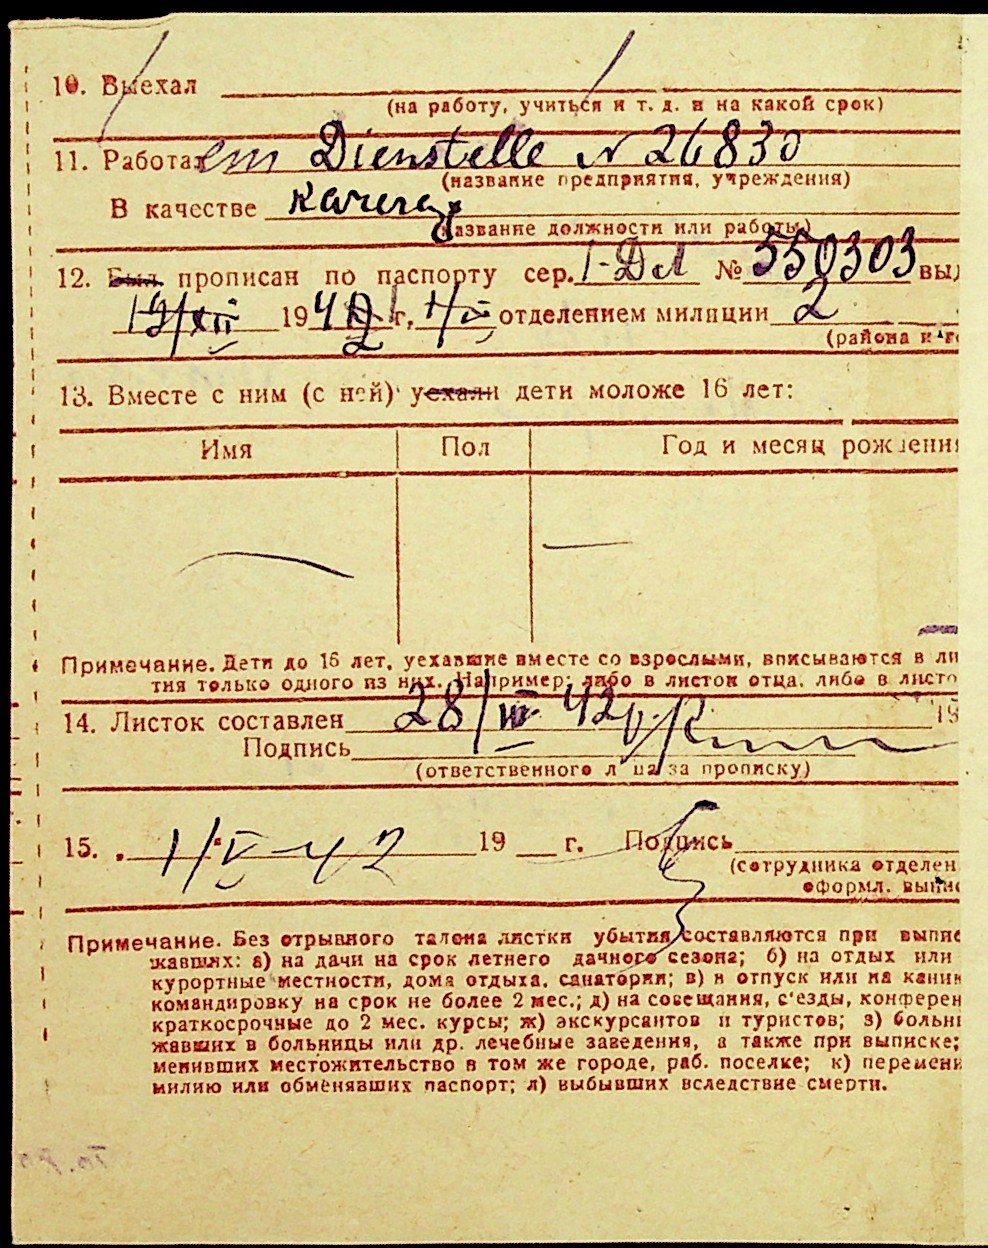 10. Выехал
(на работу, учиться и т. д. и на какой срок)
11. Работает Dienstelle N 26830
(название предприятия, учреждения)
В качестве
(название должности или работы)
12. Был прописан по паспорту сер. I-ДЛ № 550303 выд
19/XII 1942 г., отделением милиции 2
(района и го
13. Вместе с ним (с ней) уехали дети моложе 16 лет:
Имя Пол Год и месяц рождения
Примечание. Дети до 16 лет, уехавшие вместе со взрослыми, вписываются в ли
тия только одного из них. Например: либо в листок отца, либо в листо
14. Листок составлен 28/III 42 г. 19
Подпись
(ответственного лица за прописку)
15. 1/V-42 19 г. Подпись
(сотрудника отделен
оформл. выпис
Примечание. Без отрывного талона листки убытия составляются при выпис
жавших: а) на дачи на срок летнего дачного сезона; б) на отдых или
курортные местности, дома отдыха, санатории; в) в отпуск или на каник
командировку на срок не более 2 мес.; д) на совещания, с'езды, конферен
краткосрочные до 2 мес. курсы; ж) экскурсантов и туристов; з) больны
жавших в больницы или др. лечебные заведения, а также при выписке;
менивших местожительство в том же городе, раб. поселке; к) перемени
милию или обменявших паспорт; л) выбывших вследствие смерти.